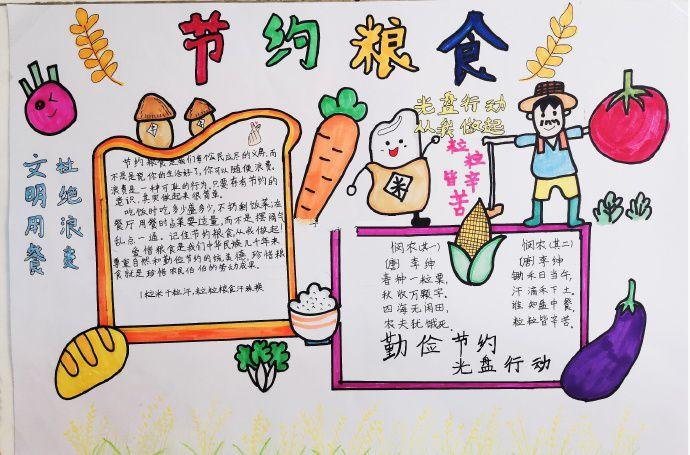 节约粮食
光盘行动
从我做起
粒粒
皆辛
苦
文明用餐
杜绝浪费
节约粮食是我们每个公民应尽的义务,而
不是是说,你的生活好了,你可以随便浪费。
浪费是一种可耻的行为,只要存有节约的
意识,其实做起来很简单。
吃饭时吃多少盛多少,不扔剩饭菜,在
餐厅用餐时点菜要适量,而不是摆阔气
乱点一通。记住节约粮食从我做起!
爱惜粮食是我们中华民族几千年来
尊重自然和勤俭节约的传统美德,珍惜粮
食就是珍惜农民伯伯的劳动成果。
1粒米千粒汗,粒粒粮食汗珠换
米
悯农(其一)
(唐)李绅
春种一粒粟,
秋收万颗子。
四海无闲田,
农夫犹饿死。
悯农(其二)
(唐)李绅
锄禾日当午,
汗滴禾下土。
谁知盘中餐,
粒粒皆辛苦。
勤俭节约
光盘行动